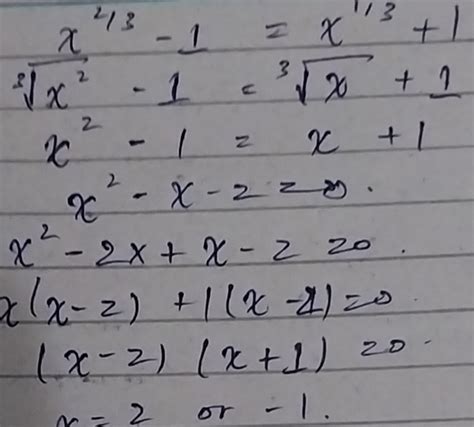 x^2/3 - 1 = x^1/3 + 1
∛x² - 1 = ∛x + 1
x² - 1 = x + 1
x² - x - 2 = 0.
x² - 2x + x - 2 = 0.
x(x-2) + 1(x-2) = 0.
(x-2) (x+1) = 0.
x = 2 or -1.